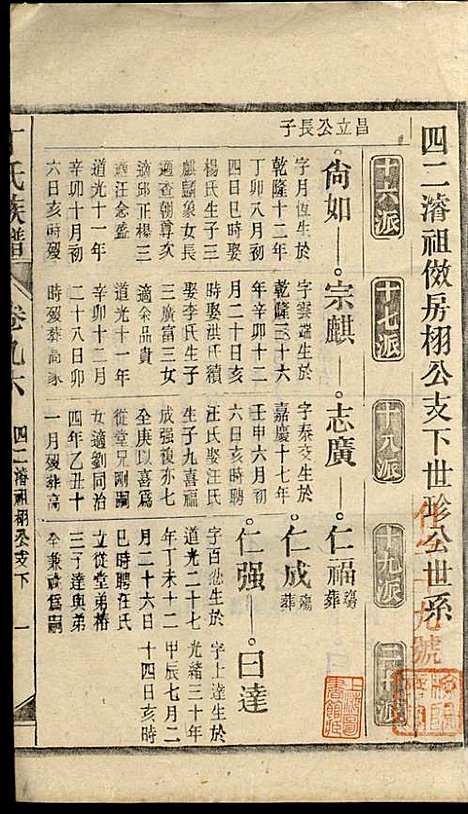 四二濬祖倣房栩公支下世彰公世系
十六派
十七派
十八派
十九派
二十派
昌立公長子
尙如
宗麒
志廣
仁福 殤葬
仁成 殤葬
仁强
曰達
字月恆生於
乾隆十二年
丁卯八月初
四日巳時娶
楊氏生子三
麒廣泉女長
適查朝尊次
適邱正楊三
適汪念盛
道光十一年
辛卯十月初
六日亥時歿
字雲瑞生於
乾隆三十六
年辛卯十二
月二十日亥
時娶洪氏續
娶李氏生子
三廣富三女
適余品貴
道光十一年
辛卯十二月
二十八日卯
時歿葬高冢
字泰交生於
嘉慶十七年
壬申六月初
六日亥時聘
汪氏娶汪氏
生子九喜福
成强複亦七
全庚以喜爲
從堂兄剛嗣
女適劉同治
四年乙丑十
一月歿葬高
字百忿生於
道光二十七
年丁未十二
月二十六日
巳時聘任氏
立從堂弟椿
三子達與弟
全兼祧爲嗣
字上達生於
光緒三十年
甲辰七月二
十四日亥時
氏族譜
卷九六
四二濬祖栩公支下
一
上海圖書館藏
九號